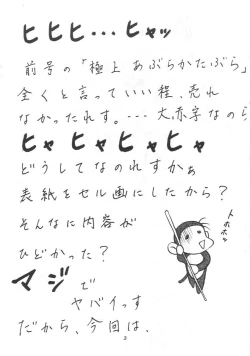 ヒヒヒ・・・ヒャッ
前号の「極上あぶらかたぶら」
全くと言っていい程、売れ
なかったれす。・・・大赤字なのら
ヒャヒャヒャヒャ
どうしてなのれすかぁ
表紙をセル画にしたから？
そんなに内容が
ひどかった？
マジで
ヤバイっす
だから、今回は、
トホホ